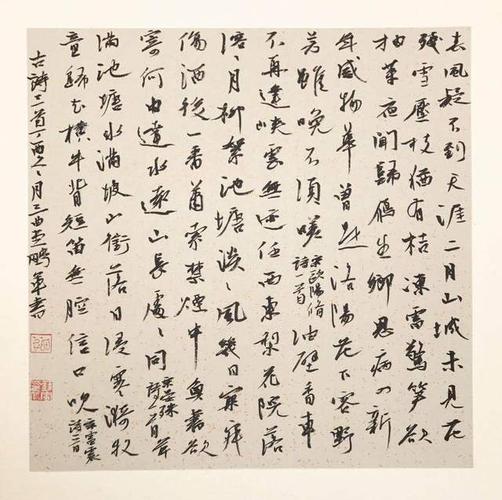 春風疑不到天涯二月山城未見花
殘雪壓枝猶有桔凍雷驚笋欲
抽芽夜聞歸雁生鄉思病入新
年感物華曾是洛陽花下客野
芳雖晚不須嗟宋歐陽修詩一首油壁香車
不再逢峽雲無迹任西東梨花院落
溶〻月柳絮池塘淡〻風幾日寂寥
傷酒後一番蕭索禁煙中魚書欲
寄何由達水遠山長處〻同宋晏殊詩一首草
滿池塘水滿陂山銜落日浸寒漪牧
童歸去橫牛背短笛無腔信口吹宋雷震詩一首
古詩三首月鵬書